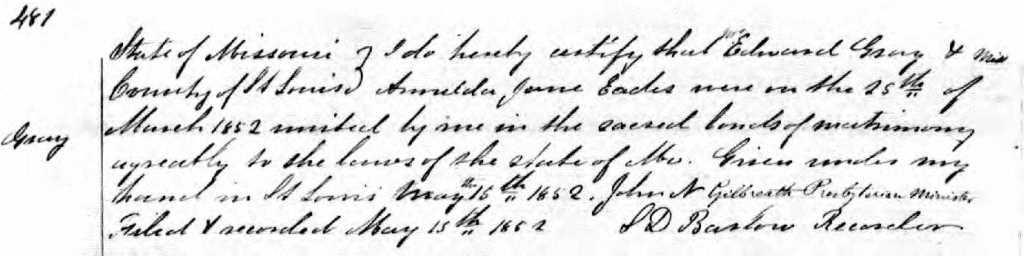 481
State of Missouri } I do hereby certify that Mr Edward Gray & Miss
County of St Louis } Armelda Jane Eades were on the 25th of
Gray
March 1852 united by me in the sacred bonds of matrimony
agreably to the laws of the state of Mo. Given under my
hand in St Louis May 15th 1852. John N Gilbreath Presbyterian Minister
Filed & recorded May 15th 1852 S D Barlow Recorder